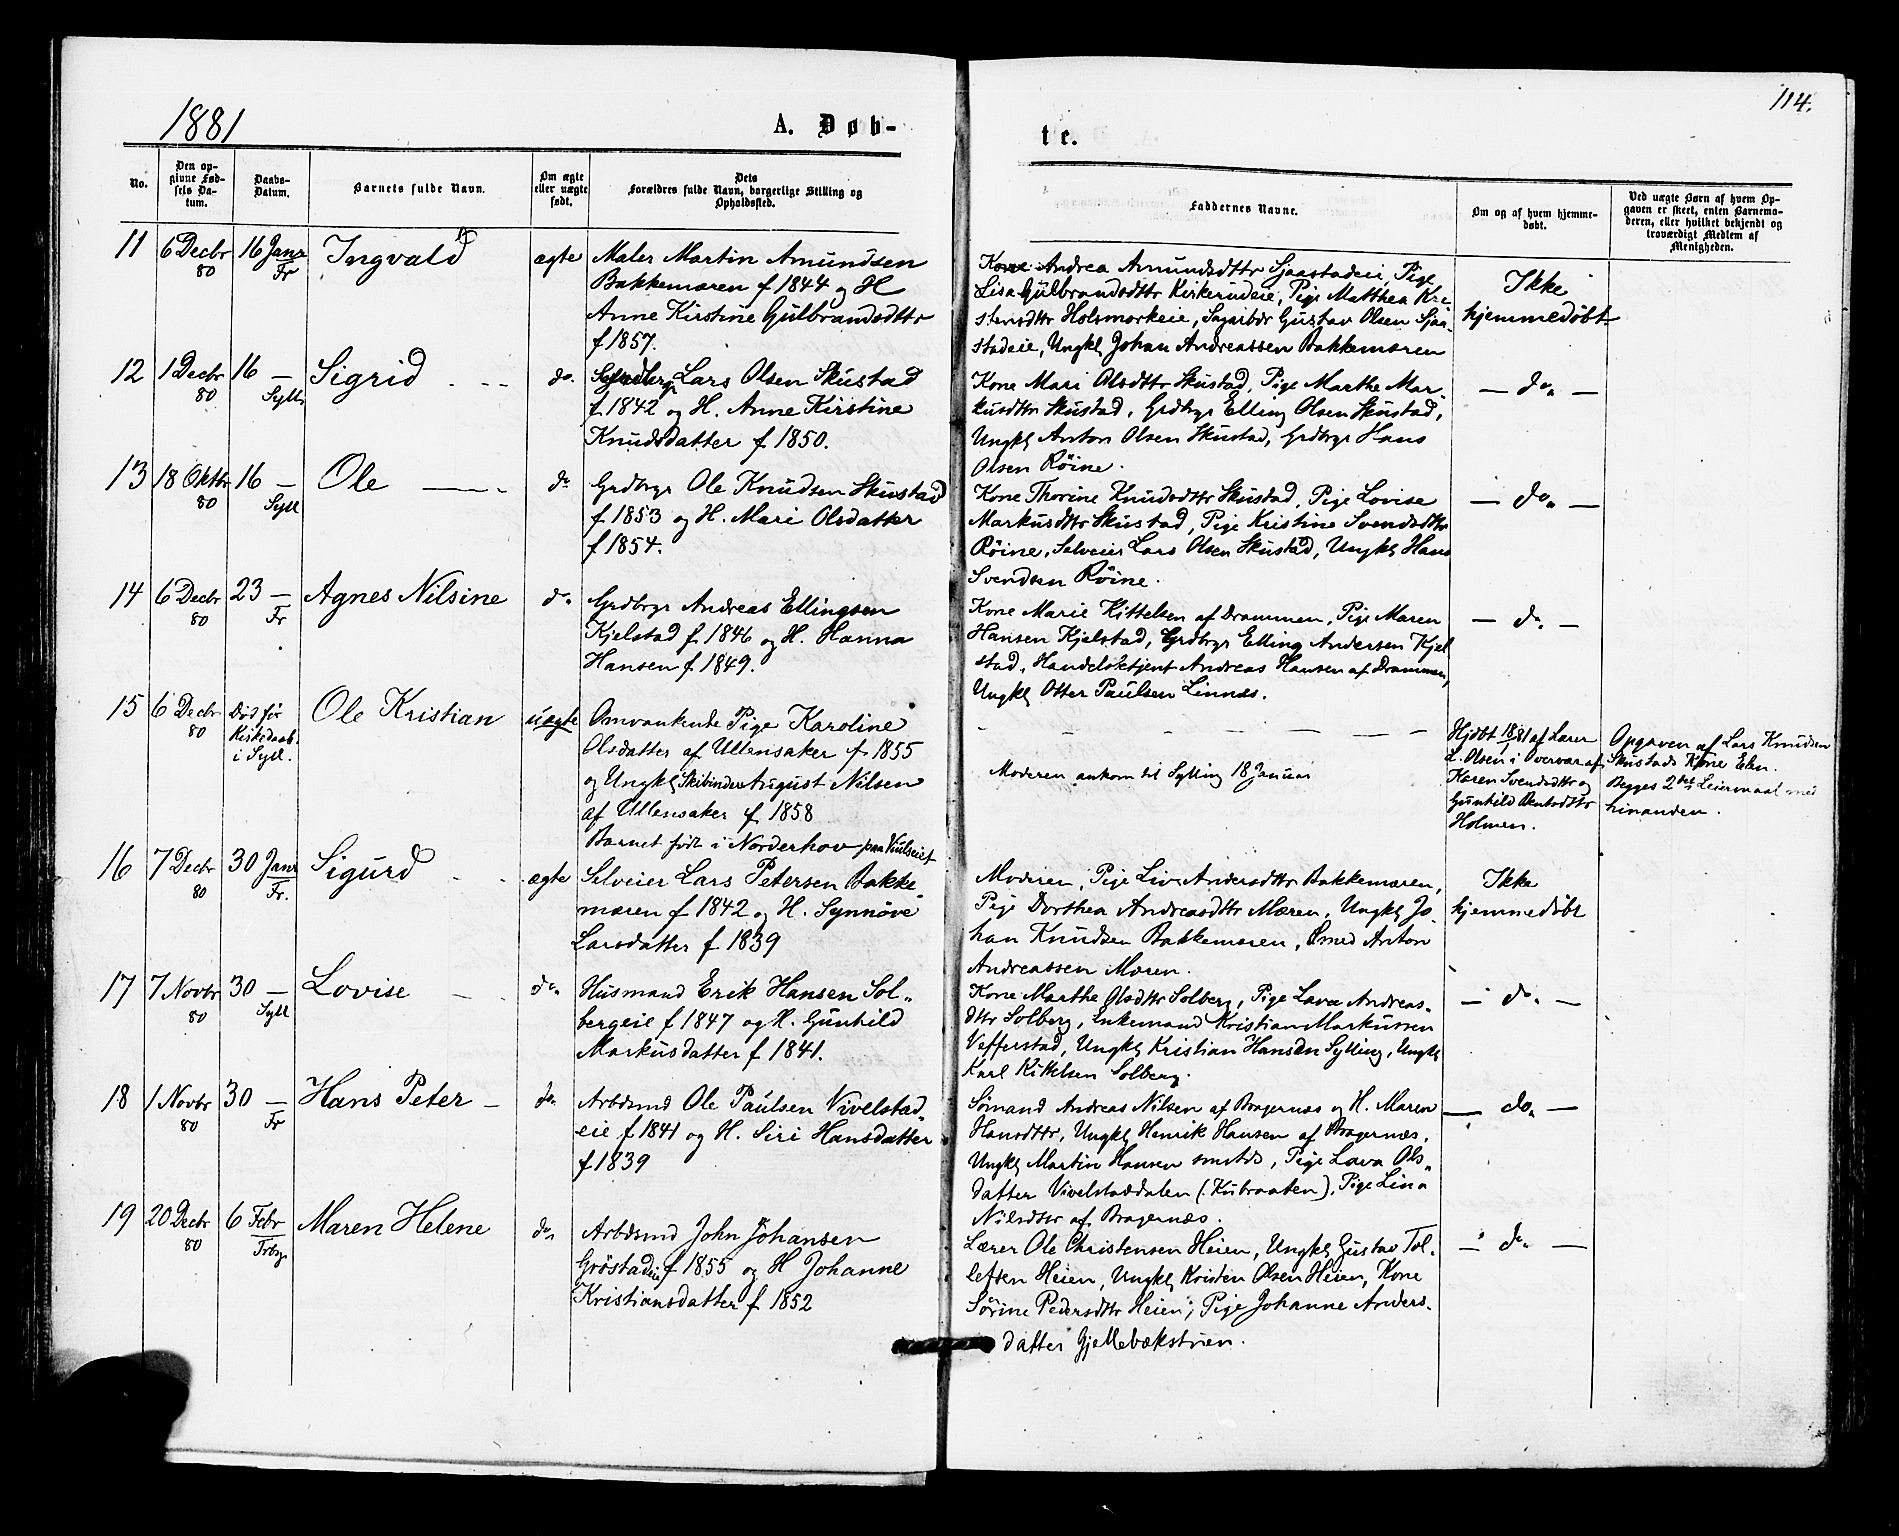 1881
A. Døb-
No.
Den op-
givne Fød-
sels Da-
tum.
Daabs-
Datum.
Barnets fulde Navn.
Om ægte
eller uægte
født.
Dets
Forældres fulde Navn, borgerlige Stilling og
Opholdssted.
11
6 Decbr
80
16 Janr
Fr
Ingvald
ægte
Maler Martin Amundsen
Bakkemæren f 1844 og H
Anne Kirstine Gulbrandsdttr
f 1857.
12
1 Decbr
80
16 —
Syll.
Sigrid
do.
Lars Olsen Skustad
f 1842 og H. Anne Kirstine
Knudsdatter f 1850.
13
18 Oktbr
80
16 —
Syll
Ole
do
Grdbrgr Ole Knudsen Skustad
f 1853 og H. Mari Olsdatter
f 1854.
14
6 Decbr
80
23 —
Fr
Agnes Nilsine
do
Grdbrgr Andreas Ellingsen
Kjelstad f 1846 og H. Hanna
Hansen f 1849.
15
6 Decbr
80
Død før
Kirkedaab.
i Syll.
Ole Kristian
uægte
Omvankende Pige Karoline
Olsdatter af Ullensaker f 1855
og Ungkl Skibinder August Nilsen
af Ullensaker f 1858
Barnet født i Norderhov paa
16
7 Decbr
80
30 Janr
Fr.
Sigurd
ægte
Selveier Lars Petersen Bakke-
mæren f 1842 og H. Synnöve
Larsdatter f 1839
17
7 Novbr
80
30 —
Syll
Lovise
do.
Husmand Erik Hansen Sol-
bergeie f 1847 og H. Gunhild
Markusdatter f 1841.
18
1 Novbr
80
30 —
Fr
Hans Peter
do.
Arbdsmd Ole Paulsen Vivelstad-
eie f 1841 og H. Siri Hansdatter
f 1839
19
20 Decbr
80
6 Febr
Maren Helene
do
Arbdsmd John Johansen
Gröstadeie f 1855 og H Johanne
Kristiansdatter f 1852
114.
te.
Faddernes Navne.
Om og af hvem hjemme-
døbt.
Ved uægte Børn af hvem Op-
gaven er skeet, enten Barnemo-
deren, eller hvilket bekjendt og
troværdigt Medlem af
Menigheden.
Kone Andrea Amundsdttr Sjaastadeie, Pige
Lisa Gulbrandsdttr Kirkerudeie, Pige Matthea Kri-
stensdttr Holsmarkeie, Sagarbdr Gustav Olsen Sjaa-
stadeie, Ungkl Johan Andreassen Bakkemæren
Ikke
hjemmedøbt
Kone Mari Olsdttr Skustad, Pige Marthe Mar-
kusdttr Skustad, Grdbrgr Elling Olsen Skustad,
Ungkl Anton Olsen Skustad, Grdbrgr Hans
Olsen Röine.
— do. —
Kone Thorine Knudsdttr Skustad, Pige Lovise
Markusdttr Skustad, Pige Kristine Svendsdttr
Röine, Selveier Lars Olsen Skustad, Ungkl Hans
Svendsen Röine.
— do. —
Kone Marie Kittelsen af Drammen, Pige Maren
Hansen Kjelstad, Grdbrgr Elling Andersen Kjel
stad, Handelsbetjent Andreas Hansen af Drammen,
Ungkl Otter Paulsen Linnæs.
— do. —
Moderen ankom til Sylling 18 Januar
Hjdbt af Lærer
L. Olsen i Overværaf
Karen Svendsdttr og
Gunhild Knutsdttr
Holmen.
Opgaven af Lars Knudsen
Skustads Kone Elen.
Begges 2det Leiermaal med
hinanden.
Moderen, Pige Live Andersdttr Bakkemæren,
Pige Dorthea Andreasdttr Mæren, Ungkl Jo-
han Knudsen Bakkemæren, Smed Anton
Andreassen Mæren.
Ikke
hjemmedøbt
Kone Marthe Olsdttr Solberg, Pige Lava Andreas-
dttr Solberg, Enkemand Kristian Markussen
Vefferstad, Ungkl Kristian Hansen Sylling, Ungkl
Karl Kittelsen Solberg.
— do. —
Sömand Andreas Nilsen af Bragernæs og H. Maren
Hansdttr, Ungkl Henrik Hansen af Bragernæs,
Ungkl Martin Hansen smstds, Pige Lava Ols-
datter Vivelstaddalen (Kubraaten), Pige Lina
Nilsdttr af Bragernæs.
— do. —
Lærer Ole Christensen Heien, Ungkl Gustav Tol-
lefsen Heien, Ungkl Kristen Olsen Heien, Kone
Sörine Pedersdttr Heien, Pige Johanne Anders-
datter Gjellebækstuen.
— do. —